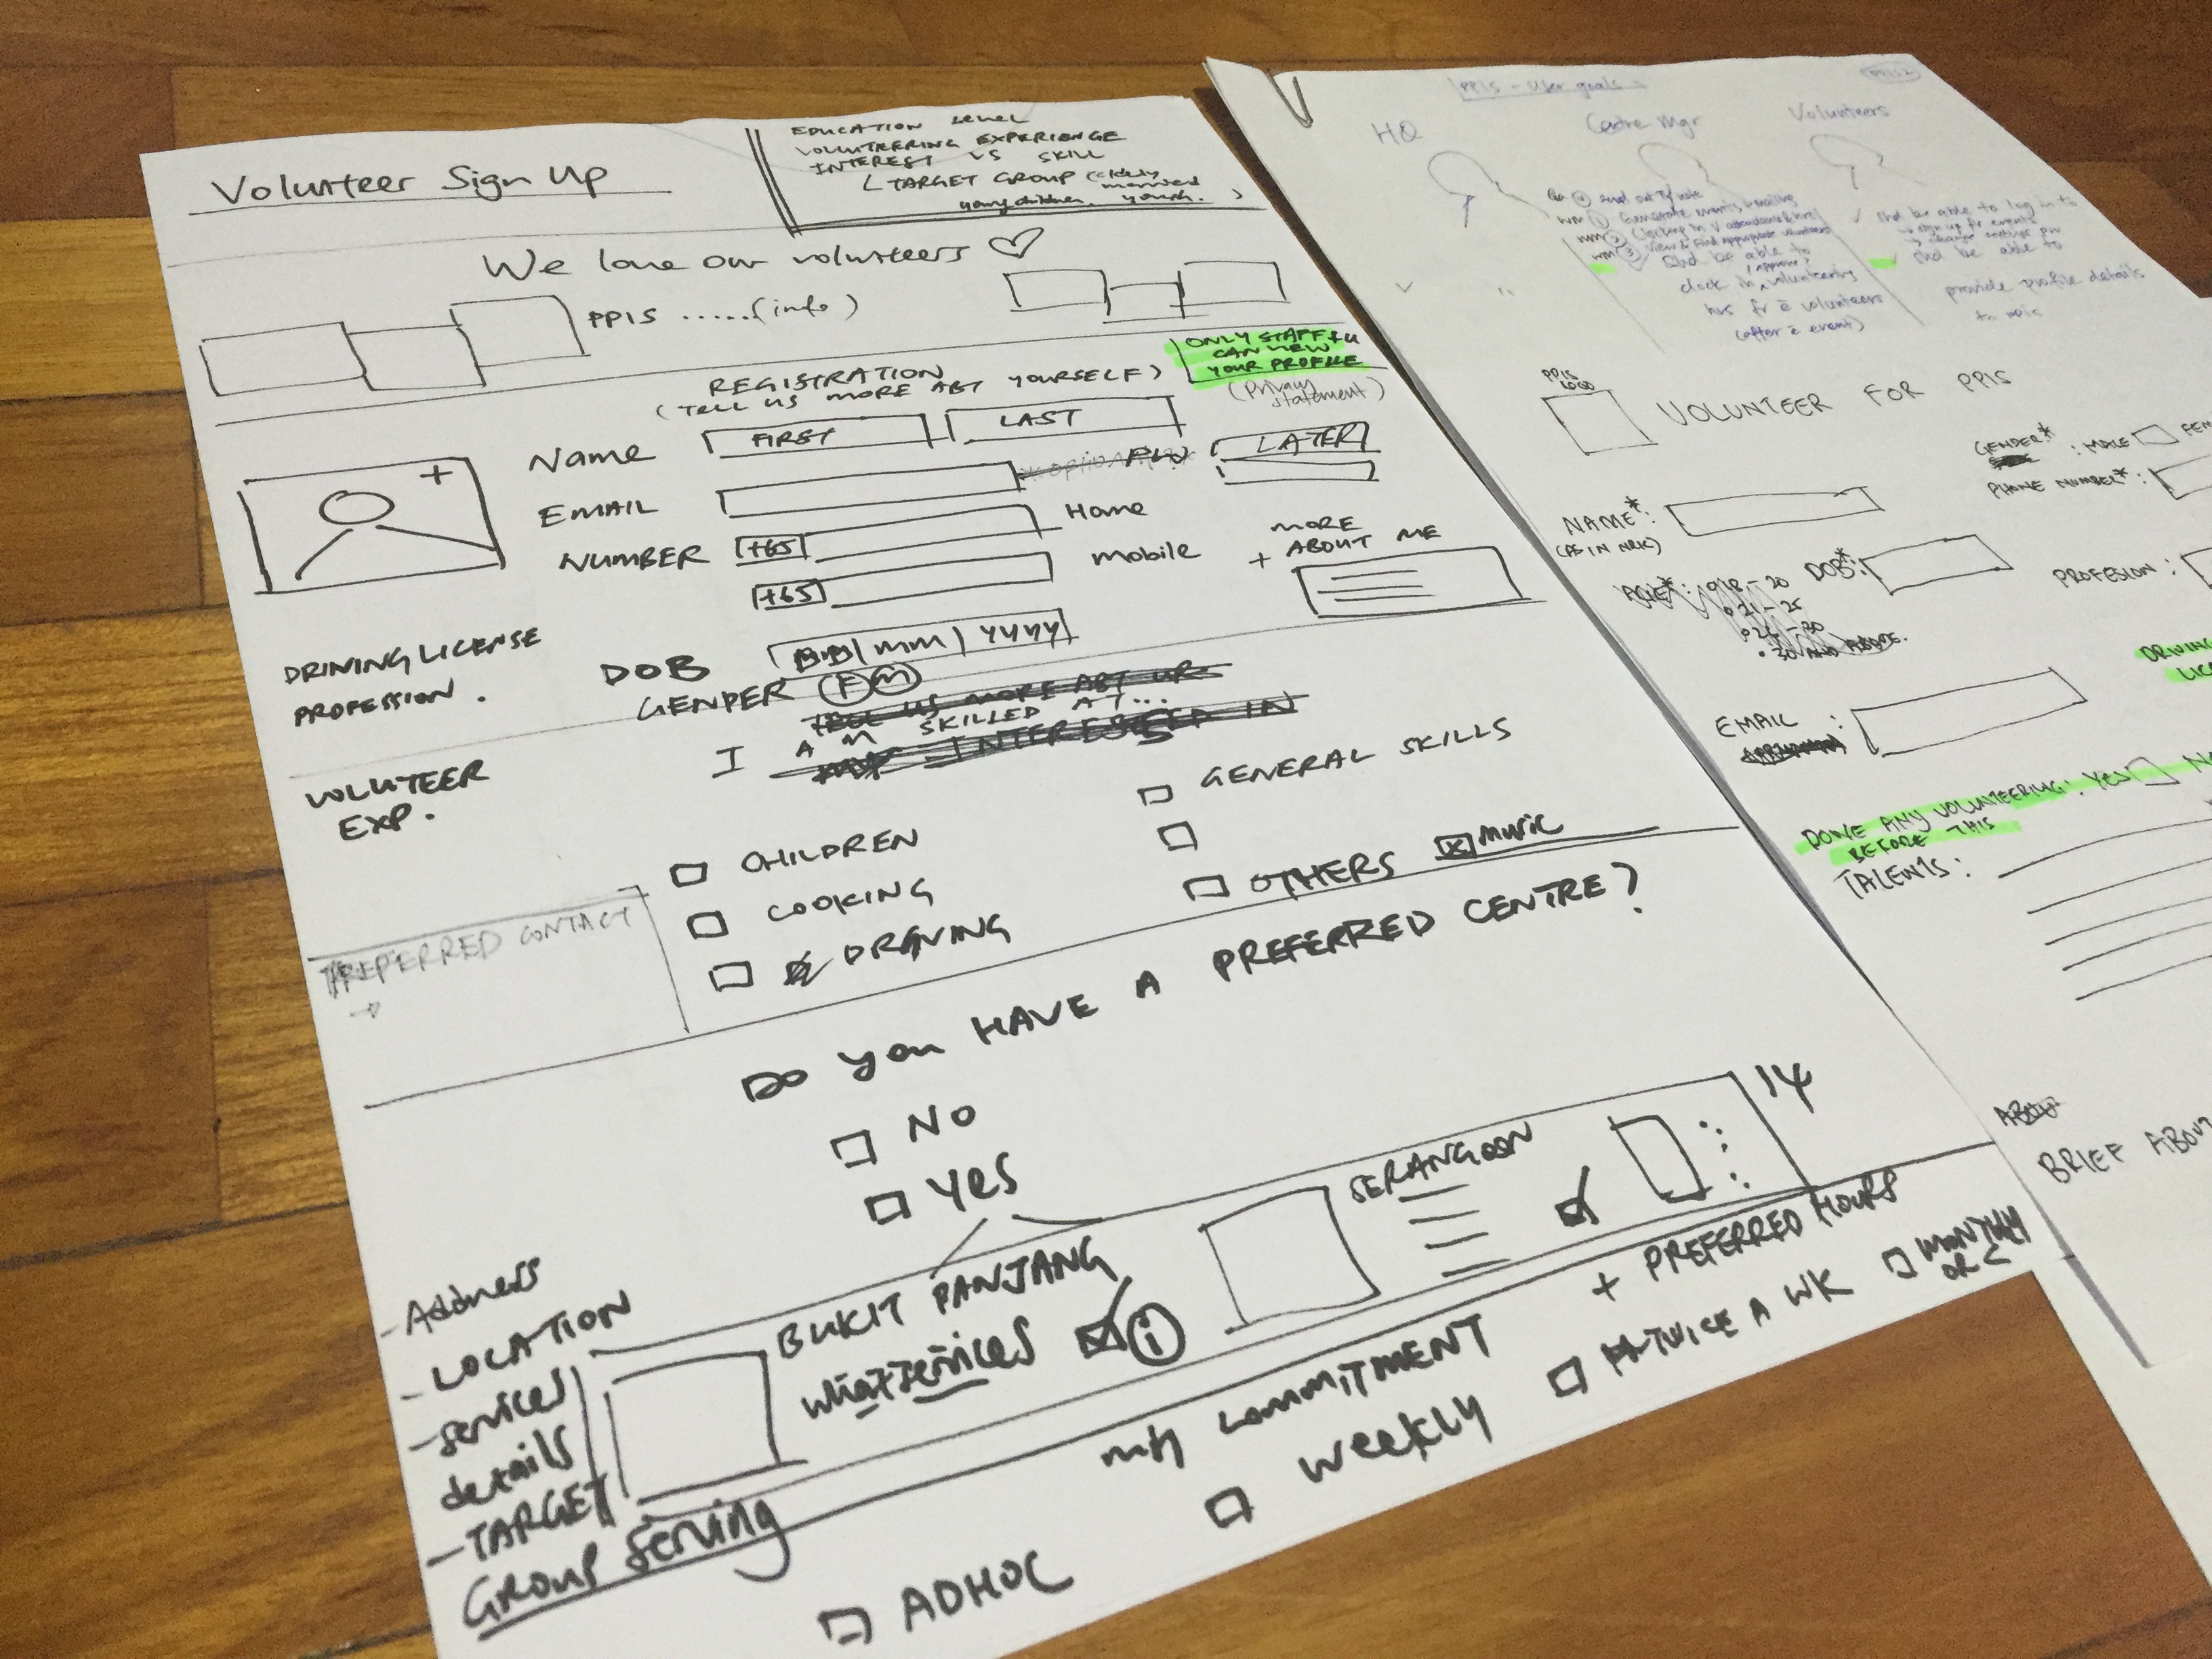 Volunteer Sign Up
EDUCATION level
VOLUNTEERING EXPERIENCE
INTEREST VS SKILL
TARGET GROUP (elderly
married
young children. youth. )
We love our volunteers ♡
PPIS ......(info)
ONLY STAFF + U
CAN VIEW
YOUR PROFILE
(Privacy
statement)
REGISTRATION
(TELL US MORE ABT YOURSELF)
Name FIRST LAST
EMAIL PW LATER
NUMBER +65 Home
+65 mobile
MORE
+ ABOUT ME
DRIVING LICENSE
PROFESSION.
DOB DD | MM | YYYY
GENDER F M
TELL US MORE ABT UR
I AM SKILLED AT...
INTERESTED IN
VOLUTEER
EXP.
GENERAL SKILLS
CHILDREN
COOKING
DRIVING
OTHERS music
PREFERRED CONTACT
DO you HAVE A PREFERRED CENTRE?
NO
YES
14
- Address
- LOCATION
- services
details
- TARGET
GROUP serving
BUKIT PANJANG
what services i
SERANGOON
my COMMITMENT + PREFERRED HOURS
ADHOC
weekly
TWICE A WK
MONTHLY
OR <
PPIS - User goals
HQ Centre Mgr Volunteers
Shd be able to
clock in volunteering
hrs fr ē volunteers
(after ē event)
shd be able to log in to
sign up for events
shd be able to
provide profile details
to PPIS
PPIS
LOGO
VOLUNTEER FOR PPIS
GENDER* : MALE FEM
PHONE NUMBER* :
NAME* :
(AS IN NRIC)
AGE* : 18 - 20
21 - 25
26 - 30
30 AND ABOVE.
DOB* :
PROFESION :
DRIVING
LIC
EMAIL :
DONE ANY VOLUNTEERING : YES N
BEFORE THIS
TALENTS :
ABOUT
BRIEF ABOUT